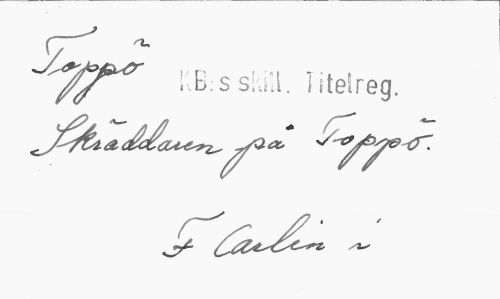 Toppö
KB:s skill. Titelreg.
Skräddaren på Toppö.
F Carlin i